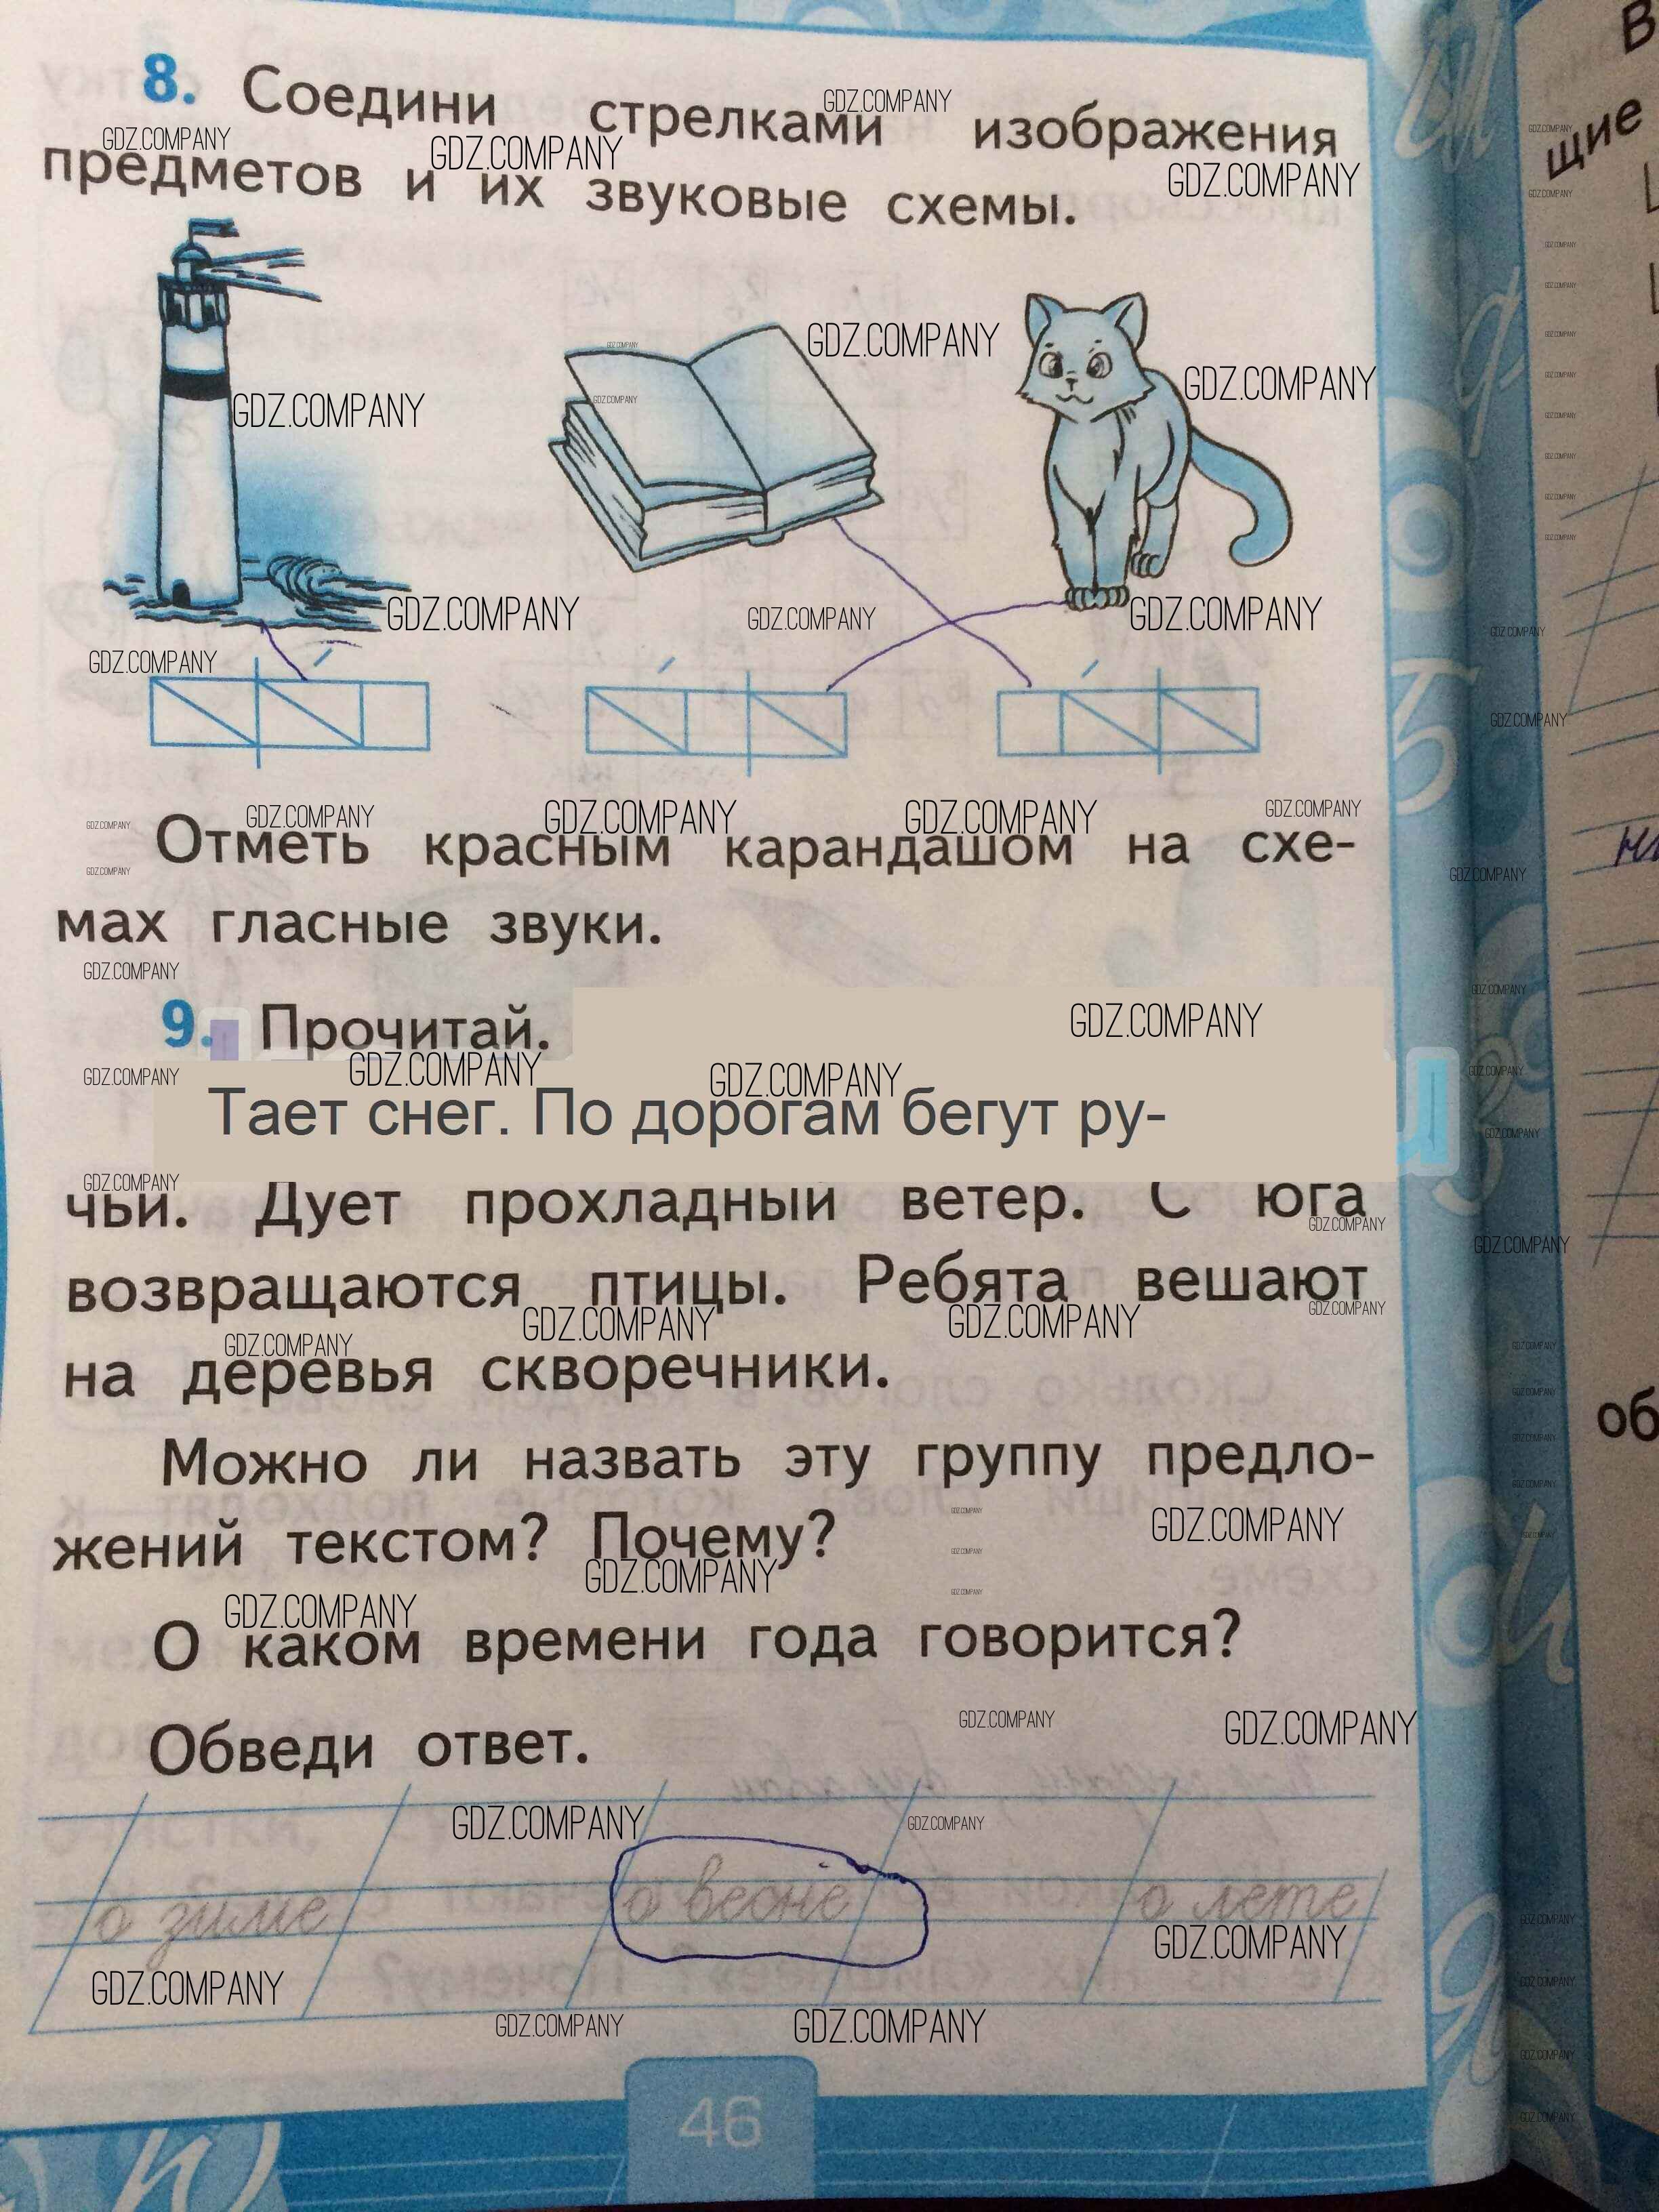 8. Соедини стрелками изображения
предметов и их звуковые схемы.
Отметь красным карандашом на схе-
мах гласные звуки.
9. Прочитай.
Тает снег. По дорогам бегут ру-
чьи. Дует прохладный ветер. С юга
возвращаются птицы. Ребята вешают
на деревья скворечники.
Можно ли назвать эту группу предло-
жений текстом? Почему?
О каком времени года говорится?
Обведи ответ.
о зиме о весне о лете
46
В
щие
об
GDZ.COMPANY